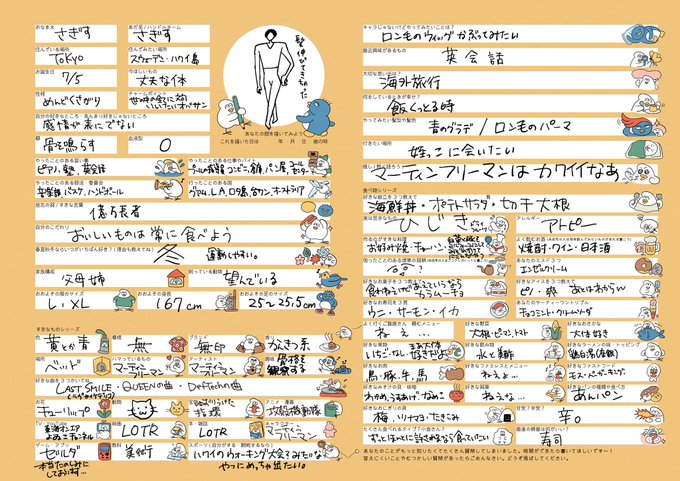 おなまえ
さぎす
あだ名/ハンドルネーム
さぎす
住んでいる場所
TOKYO
住んでみたい場所
スウェーデン・ハワイ島
お誕生日
7/5
今ほしいもの
丈夫な体
性格
めんどくさがり
チャームポイント
自分の好きなところ・あんまり好きじゃないところ
感情が表にでない
癖
骨を鳴らす
血液型
O
髪伸びてきちゃった
あなたの顔を描いてみよう
これを描いた日は 年 月 日 歳の時
やったことのある習い事
ピアノ、塾、英会話
やったことのある仕事やバイト
やったことのある部活・委員会
音楽部、バスケ、ハンドボール
行ったことのある国
グアム、L.A、ロタ島、台ワン、オーストラリア
座右の銘/すきな言葉
億万長者
自分のこだわり
おいしいものは常に食べよう
春夏秋冬ならいつがいちばん好き?(理由も教えてね)
冬
運動しやすい。
家族構成
父母姉
飼っている動物
望んでいる
おおよその服のサイズ
L、XL
おおよその身長
167cm
おおよその足のサイズ
25〜25.5cm
すきなものシリーズ
色
黄とか青
無
ブランド
無印
うさぎっ系
場所
ベッド
ハマっているもの
マーティン・フリーマン
アーティスト
マーティン・フリーマン
趣味
骨格を観察する
好きな曲を3つかいてね
LAST SMILE・QUEENの曲・Def Techの曲
お花
チューリップ
動物
アニメ・漫画
攻殻機動隊
映画
LOTR
本・雑誌
LOTR
キャラクター
マーティン・フリーマン
ゲーム・アプリ
ゼルダ
本当たのしみにしております…
教科
美術
スポーツ(自分がする・観戦するなら)
ハワイのウォーキング大会みたいなやつにめっちゃ出たい。
キャラじゃないけどやってみたいことは?
ロン毛のウィッグかぶってみたい
最近興味があるもの
英会話
大切な思い出は?
海外旅行
何をしているときが幸せ?
飯くっとる時
やってみたい髪型や髪色
青のグラデ/ロン毛のパーマ
行きたい場所
姪っこに会いたい
マーティンフリーマンはカワイイなあ
食べ物シリーズ
好きな献立を3つ教えて
海鮮丼・ポテトサラダ・切干大根
実は苦手なもの
ひじき
アレルギー
アトピー
お好み焼・チャーハン
焼酎・ワイン・日本酒
あなたのミスド3つ
エンゼルクリーム
好きなアイスを3つ教えて
好きなお寿司を3貫
ウニ・サーモン・イカ
あなたのサーティーワントリプル
チョコミント・クリームソーダ
よく行くご飯屋さん・頼むメニュー
ねぇ…
好きな野菜
大根・ピーマン・トマト
好きなおさかな
大体好き
好きな果物
いちご・なし
好きな飲み物
水と美酢
好きなラーメンの味・トッピング
好きなお肉
鳥・豚・牛・馬
好きなファミレスとメニュー
ねぇよ…
好きなファストフード
モス・バーガーキング
好きなおみそ汁の具
好きな鍋
ねぇな…
好きなパンの種類や食べ方
あんパン
好きなおにぎりの具
梅、ツナマヨ・たきこみ
甘党?辛党?
辛。
たくさん食べれるタイプ?小食さん?
ずっとほっとくと許されるなら食ていたい
最後の晩餐は何がいい?
寿司
あなたのことがもっと知りたくてたくさん質問してしまいました。時間ができたら書いてほしいです〜!
答えにくいことやむつかしい質問があったらごめんなさい。どうぞ飛ばしてください。